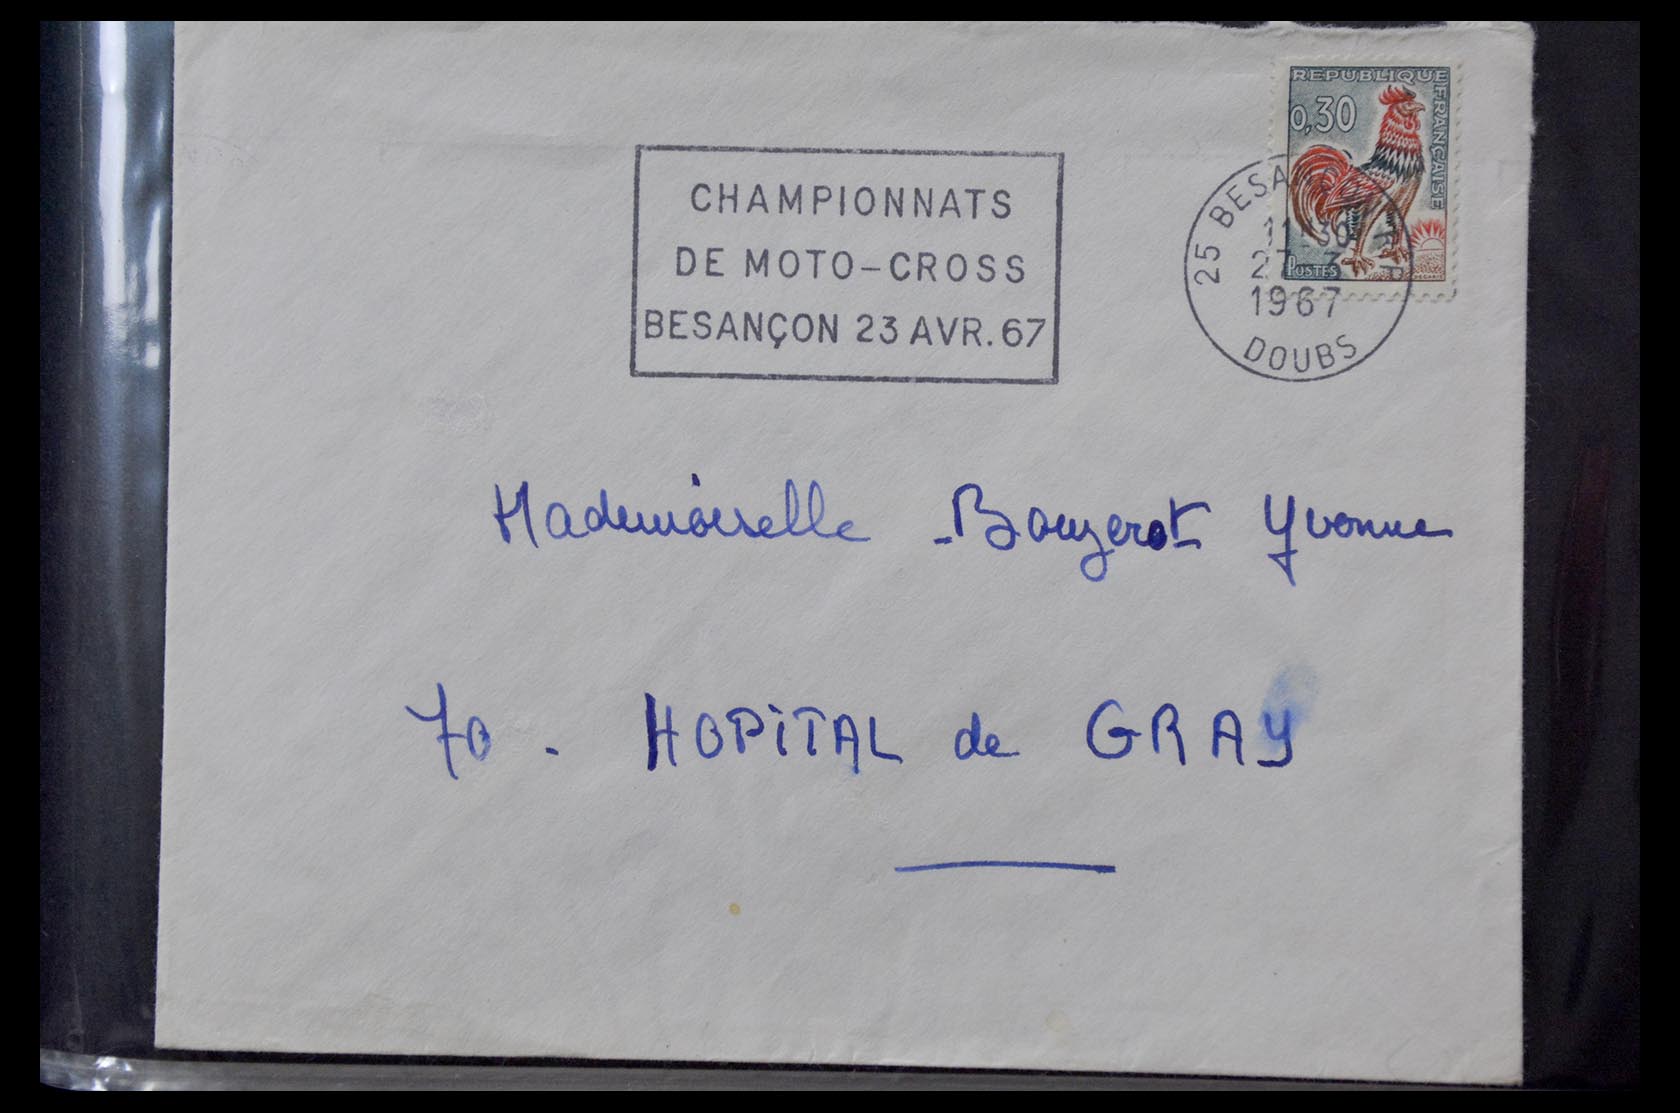 REPUBLIQUE FRANÇAISE
0,30
POSTES
CHAMPIONNATS
DE MOTO-CROSS
BESANÇON 23 AVR. 67
25 BESA R.P.
11-30
27-3
1967
DOUBS
Mademoiselle - Bouzerot Yvonne
70 - HOPITAL de GRAY